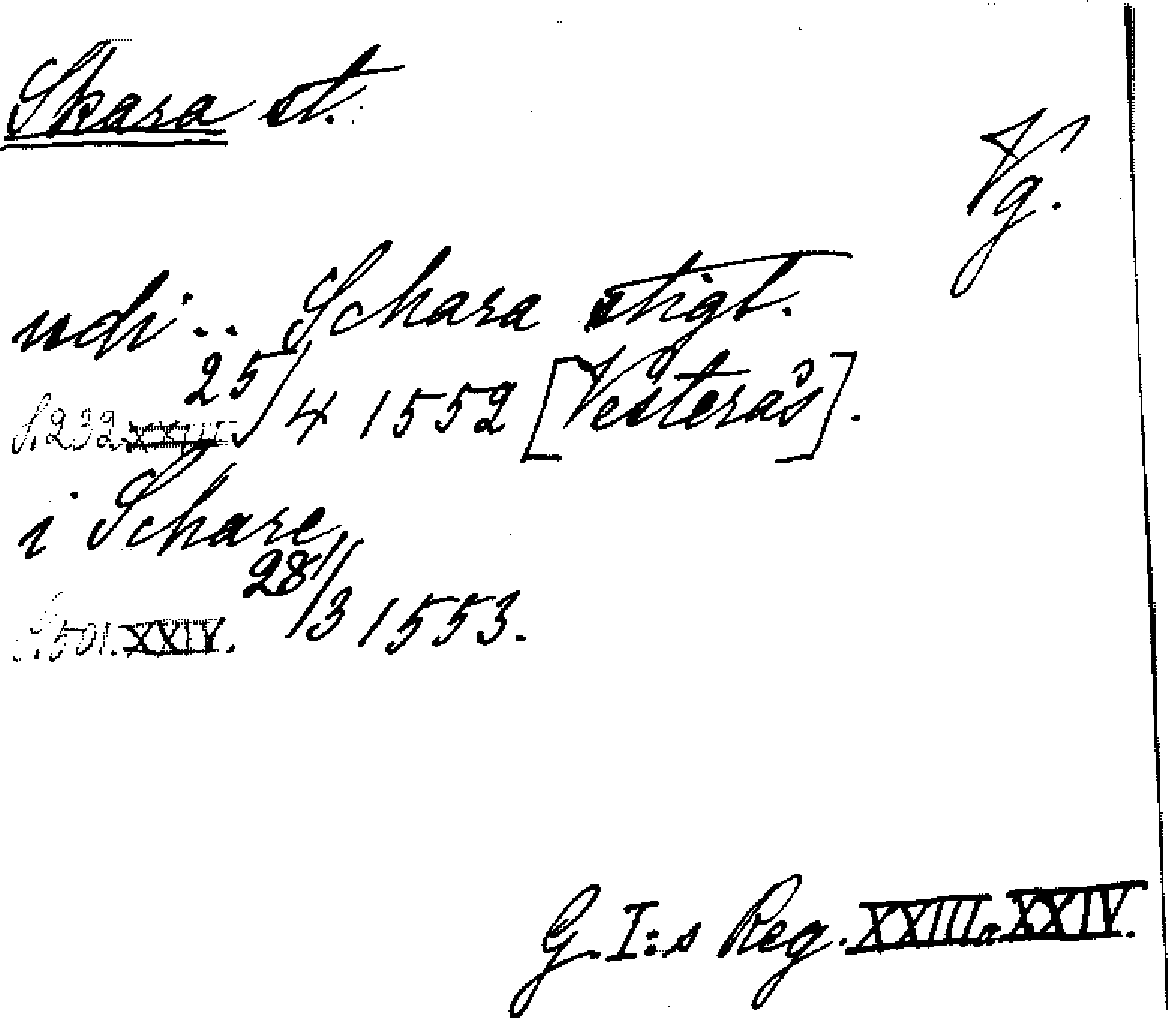 Skara st.
Vg.
udi .. Schara stigt.
S. 232 XXIII. 25/4 1552 [Vesterås].
i Schare
S. 501. XXIV. 28/3 1553.
G. I:s Reg. XXIII o. XXIV.